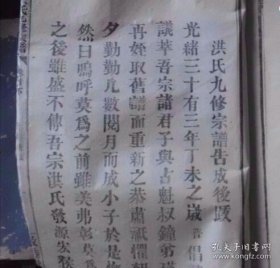 洪氏九修宗譜告成後跋
光緒三十有三年丁未之歲 倡
議萃吾宗諸君子與古魁叔鐘
再姪取舊譜而重新之恭肅
夕勤勤凡數閱月而成小子於是
然曰嗚呼莫為之前雖美弗彰莫
之後雖盛不傳吾宗洪氏發源
孔夫子旧书网